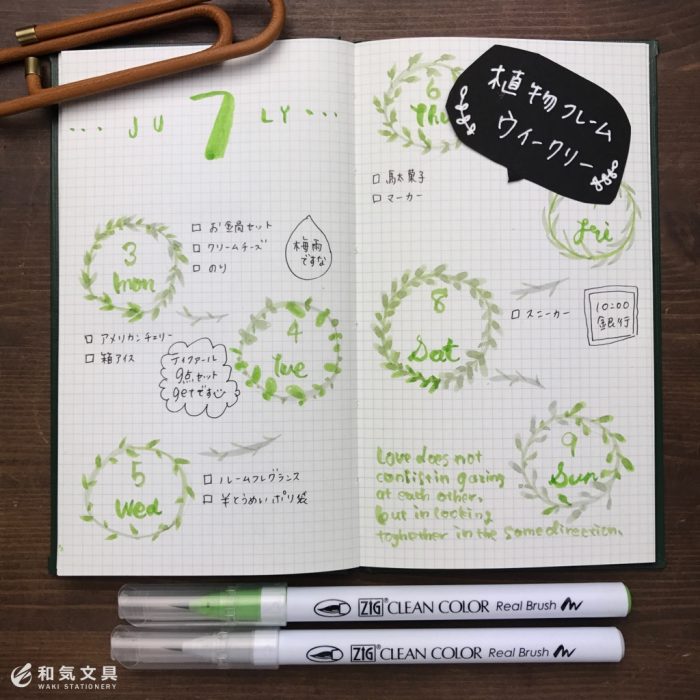 ... JU 7 LY ...
3
mon
お昼周セット
クリームチーズ
のり
梅雨
ですな
4
tue
アメリカンチェリー
箱アイス
ティファール
9点セット
getです
5
Wed
ルームフレグランス
半とうめいポリ袋
6
Thu
植物フレーム
ウィークリー
駄菓子
マーカー
fri
8
Sat
スニーカー
10:00
銀行
9
Sun
Love does not
consist in gazing
at each other,
but in looking
toghether in the same direction.
ZIG CLEAN COLOR Real Brush
ZIG CLEAN COLOR Real Brush
和気文具
WAKI STATIONERY